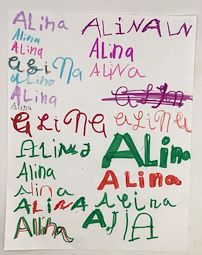 Alina
ALINALN
Alina
Alina
Alina
ALINA
aLiNa
Alina
Alina
Alina
aLiNa
aLiNa
ALiNa
ALina
Alina
ALina
Alina
ALINA
Alina
Alina